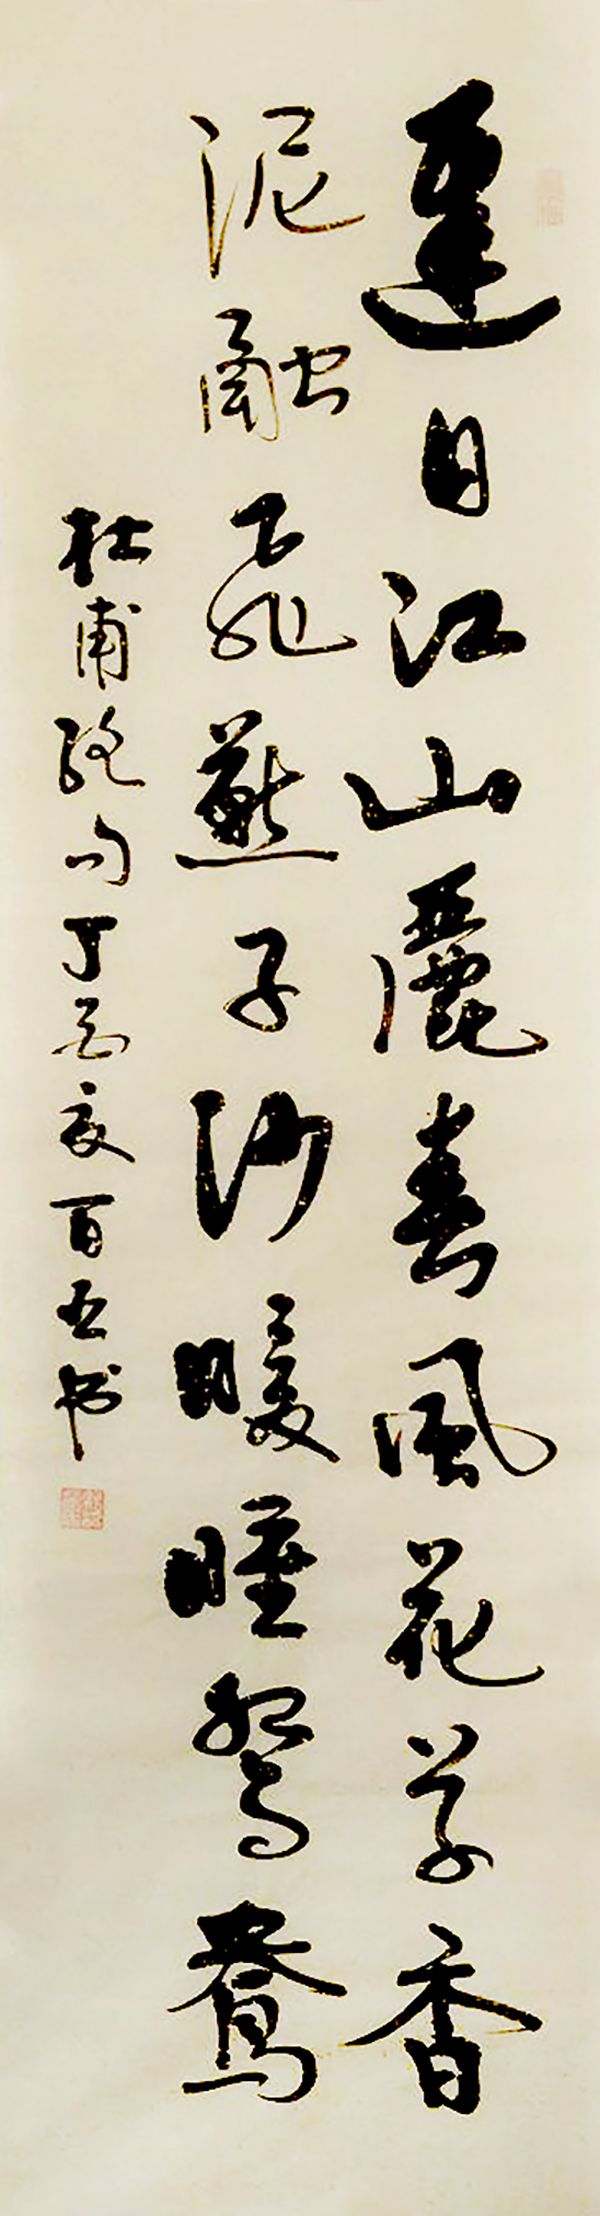 遲日江山麗春風花草香
泥融飛燕子沙暖睡鴛鴦
杜甫絕句丁夏百五书